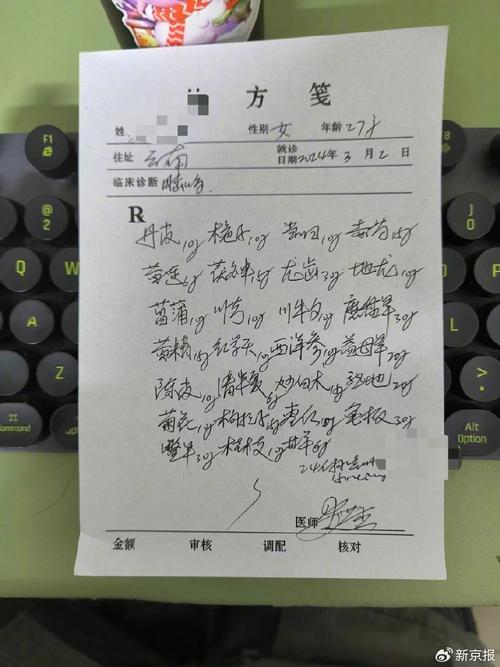 方 笺
姓 性别 女 年龄 27岁
住址 云南 就诊日期 2024年 3月 2日
临床诊断
R
丹皮10g 栀子10g 当归10g 赤芍15g
黄连6g 茯神15g 龙齿30g 地龙10g
菖蒲10g 川芎10g 川牛夕10g 鹿衔草30g
黄精15g 红景天10g 西洋参10g 益母草20g
陈皮10g 清半夏6g 炒白术15g 熟地20g
菊花10g 枸杞子10g 枣仁10g 龟板30g
30g 桂枝10g 甘草6g
医师
金额 审核 调配 核对
F1
F8
2
J
0
Q
W
P
A
Z
Command
X
Alt
Option
新京报